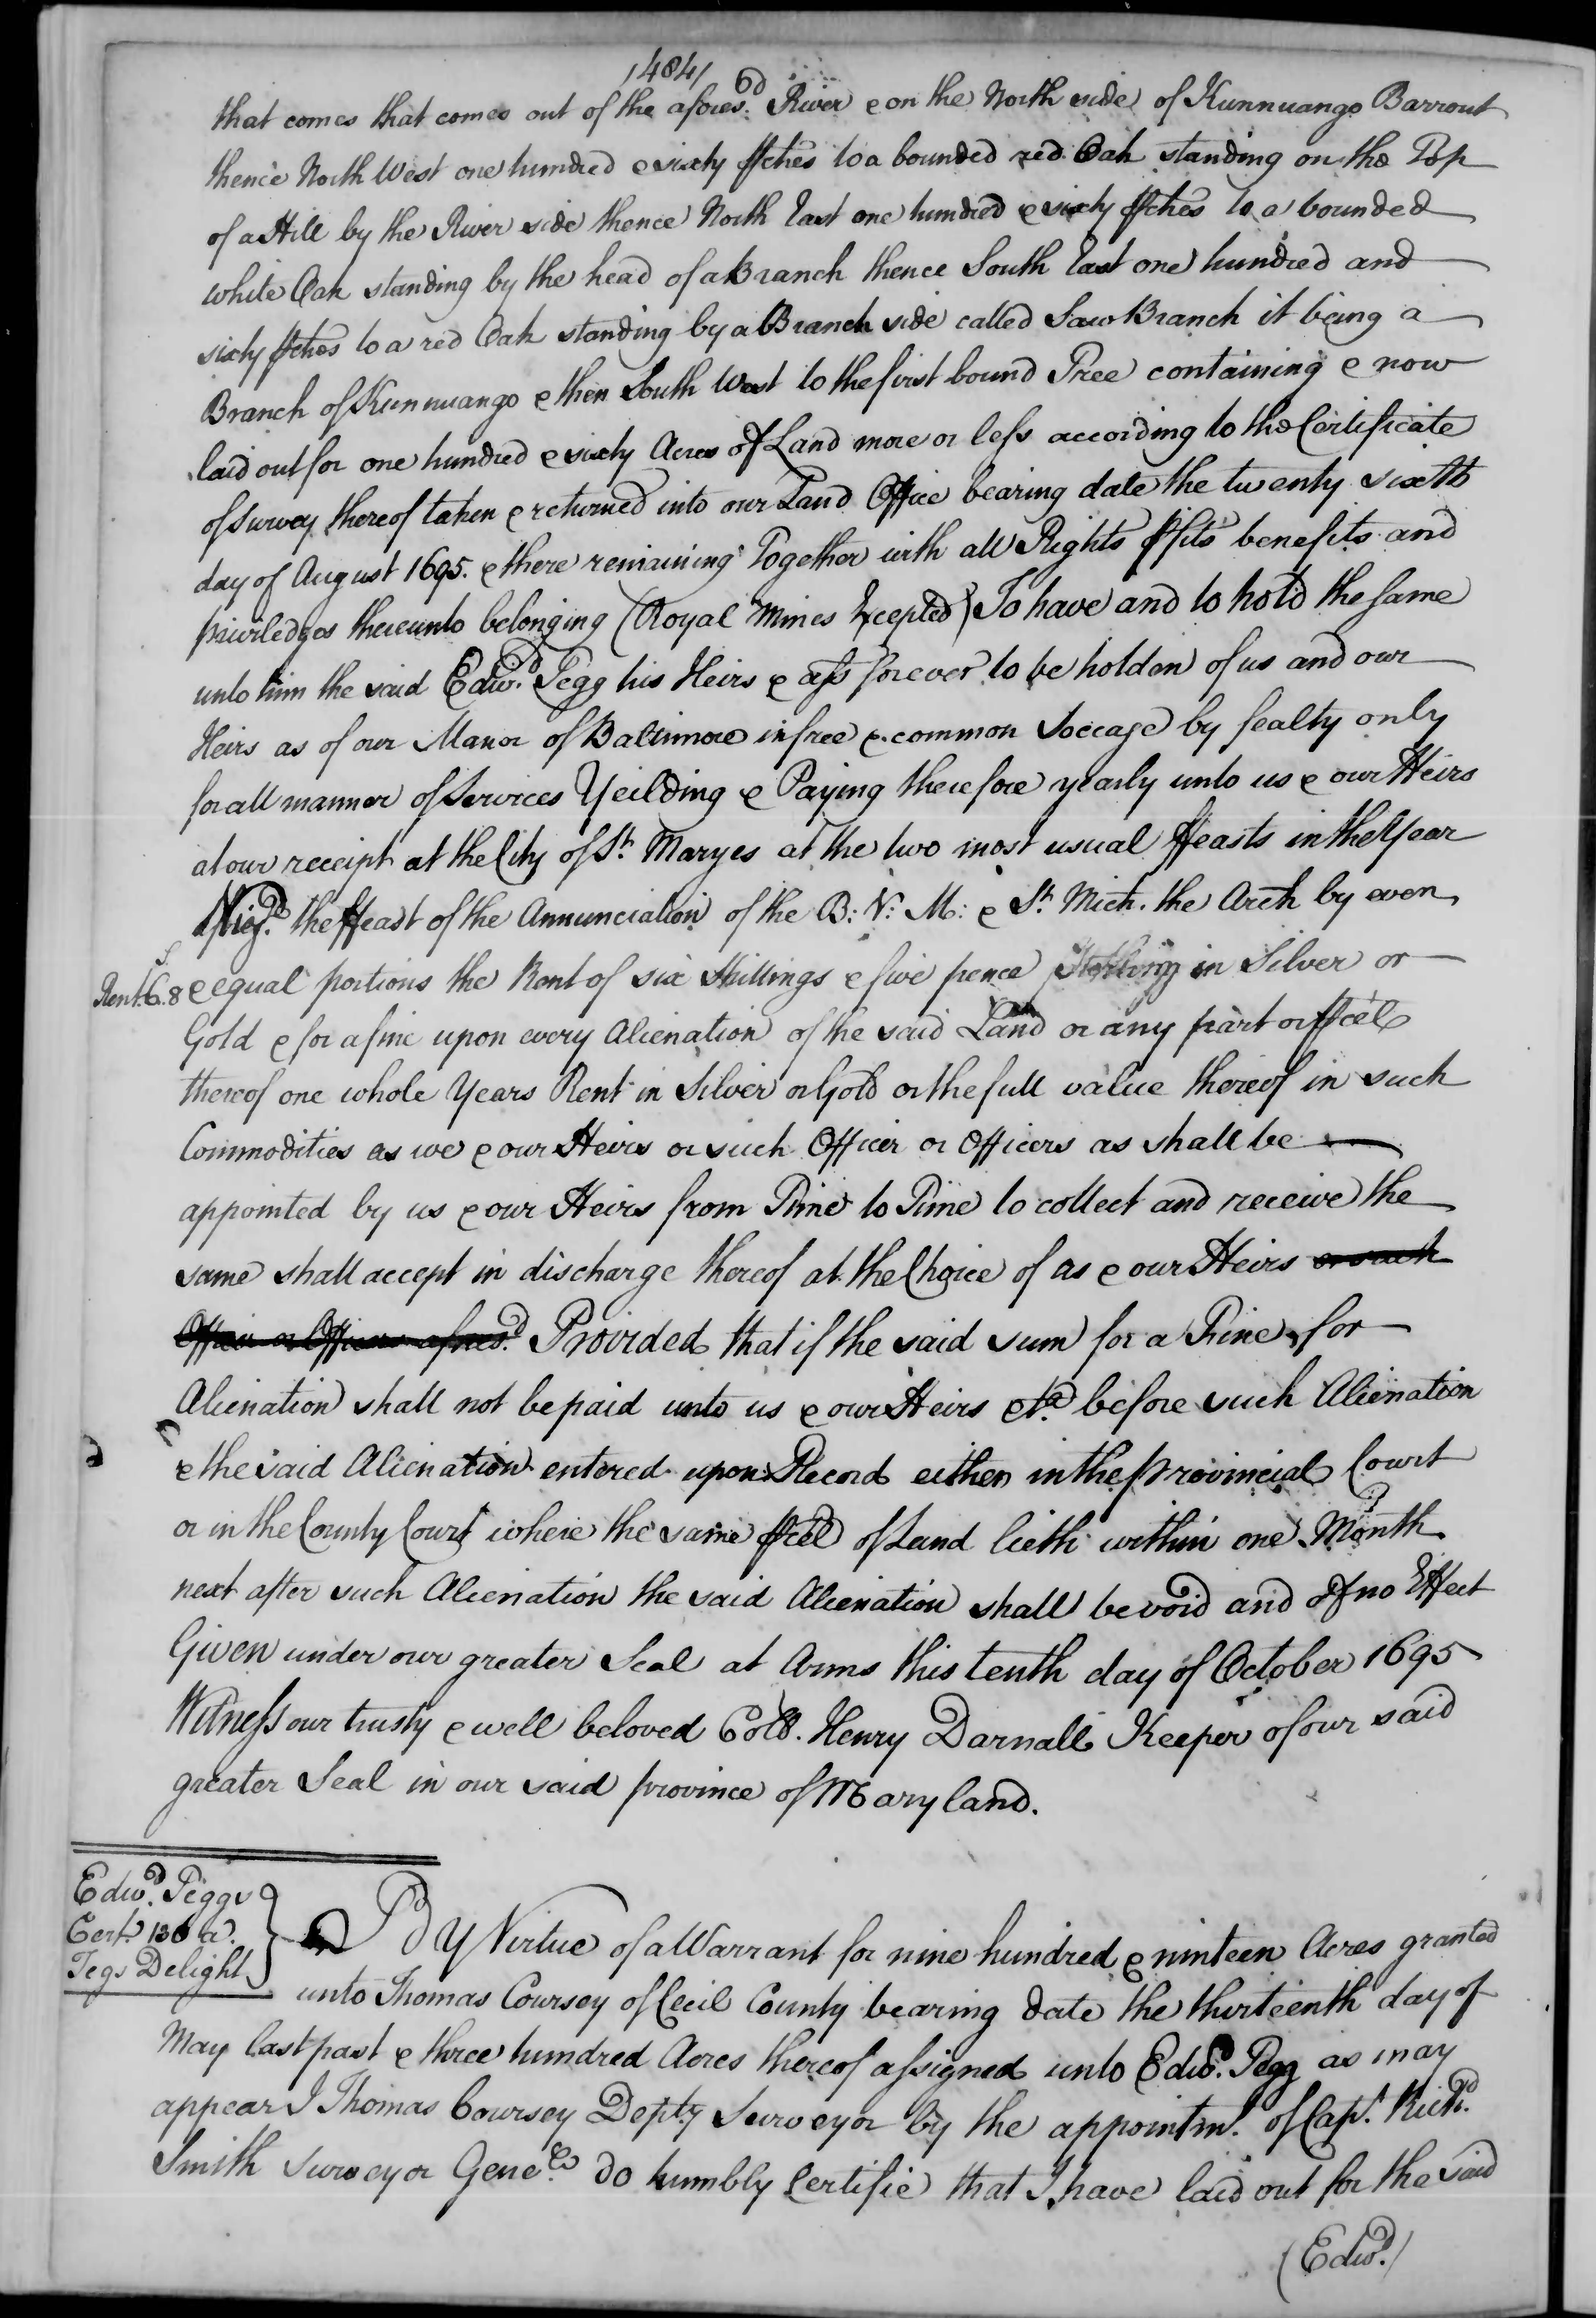 /484/
that comes that comes out of the afores:d River & on the North side of Kunnuango Barrout
thence North West one hundred & sixty ꝑches to a bounded red Oak standing on the Top
of a Hill by the River side thence North East one hundred & sixty ꝑches to a bounded
white Oak standing by the head of a Branch thence South East one hundred and
sixty ꝑches to a red Oak standing by a Branch side called Saw Branch it being a
Branch of Kunnuango & then South West to the first bound Tree containing & now
laid out for one hundred & sixty Acres of Land more or less according to the Certificate
of survey thereof taken & returned into our Land Office bearing date the twenty sixth
day of August 1695. & there remaining Together with all Rights ꝑfits benefits and
priviledges thereunto belonging (Royal Mines Excepted) To have and to hold the same
unto him the said Edwd. Pegg his Heirs & ass forever to be holden of us and our
Heirs as of our Manor of Baltimore in free & common Soccage by fealty only
for all manner of Services Yeilding & Paying therefore yearly unto us & our Heirs
at our receipt at the City of St. Maryes at the two most usual ffeasts in the Year
the ffeast of the Annunciation of the B: V: M: & St. Mich. the Arch by even
Rent 6s.8
& equal portions the Rent of six Shillings & five pence Sterling in Silver or
Gold & for a fine upon every Alienation of the said Land or any part or ꝑcel
thereof one whole Years Rent in Silver or Gold or the full value thereof in such
Commodities as we & our Heirs or such Officer or Officers as shall be
appointed by us & our Heirs from Time to Time to collect and receive the
same shall accept in discharge thereof at the Choice of us & our Heirs or such
Officer or Officers afores.d Provided that if the said sum for a Fine for
Alienation shall not be paid unto us & our Heirs &ca. before such Alienation
& the said Alienation entered upon Record either in the provincial Court
or in the County Court where the same ꝑcel of Land lieth within one Month
next after such Alienation the said Alienation shall be void and of no Effect
Given under our greater Seal at Arms this tenth day of October 1695
Witness our trusty & well beloved Coll. Henry Darnall Keeper of our said
greater Seal in our said province of Maryland.
Edwd. Peggs
Cert. 136 a.
Tegs Delight
By Virtue of a Warrant for nine hundred & ninteen Acres granted
unto Thomas Coursey of Cecil County bearing date the thirteenth day of
May last past & three hundred Acres thereof assigned unto Edwd. Pegg as may
appear I Thomas Coursey Depty Surveyor by the appointm.t of Capt. Richd.
Smith Surveyor Genell. do humbly Certifie that I have laid out for the said
(Edwd.)